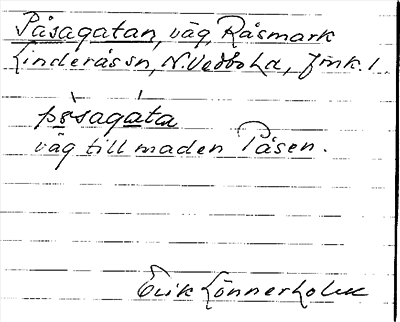 Påsagatan, väg, Råsmark
Linderås sn, N. Vedbo hd, Jmk. l.
påsagata
väg till maden Påsen.
Erik Lönnerholm